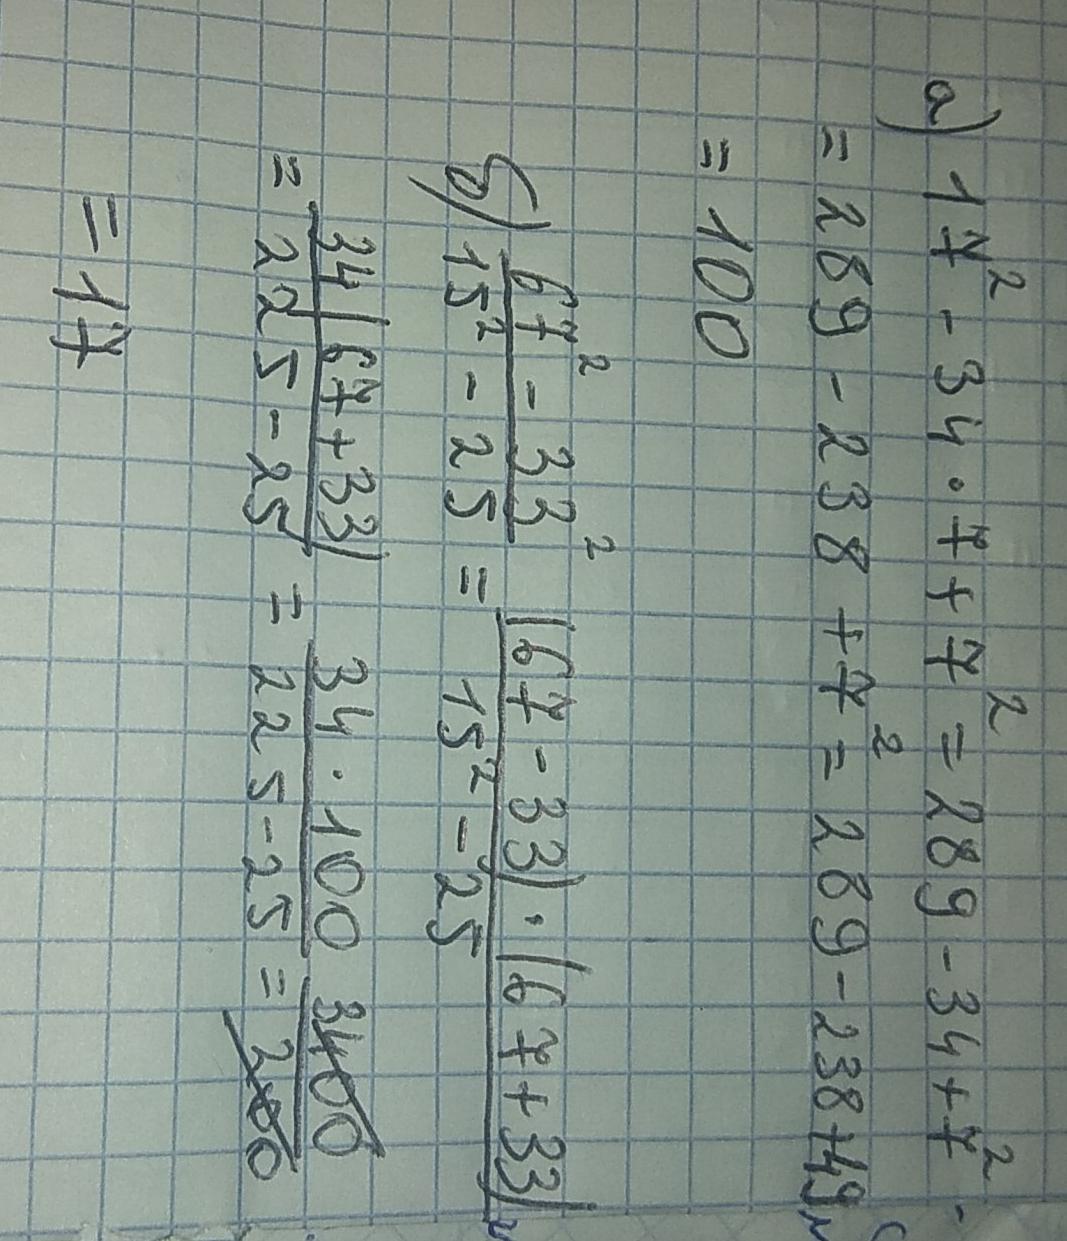 а) 17² - 34 · 7 + 7² = 289 - 34 + 7² -
= 289 - 238 + 7² = 289 - 238 + 49
= 100
б) (67² - 33²)/(15² - 25) = ((67 - 33) · (67 + 33))/(15² - 25)
= (34(67 + 33))/(225 - 25) = (34 · 100)/(225 - 25) = 3400/200
= 17